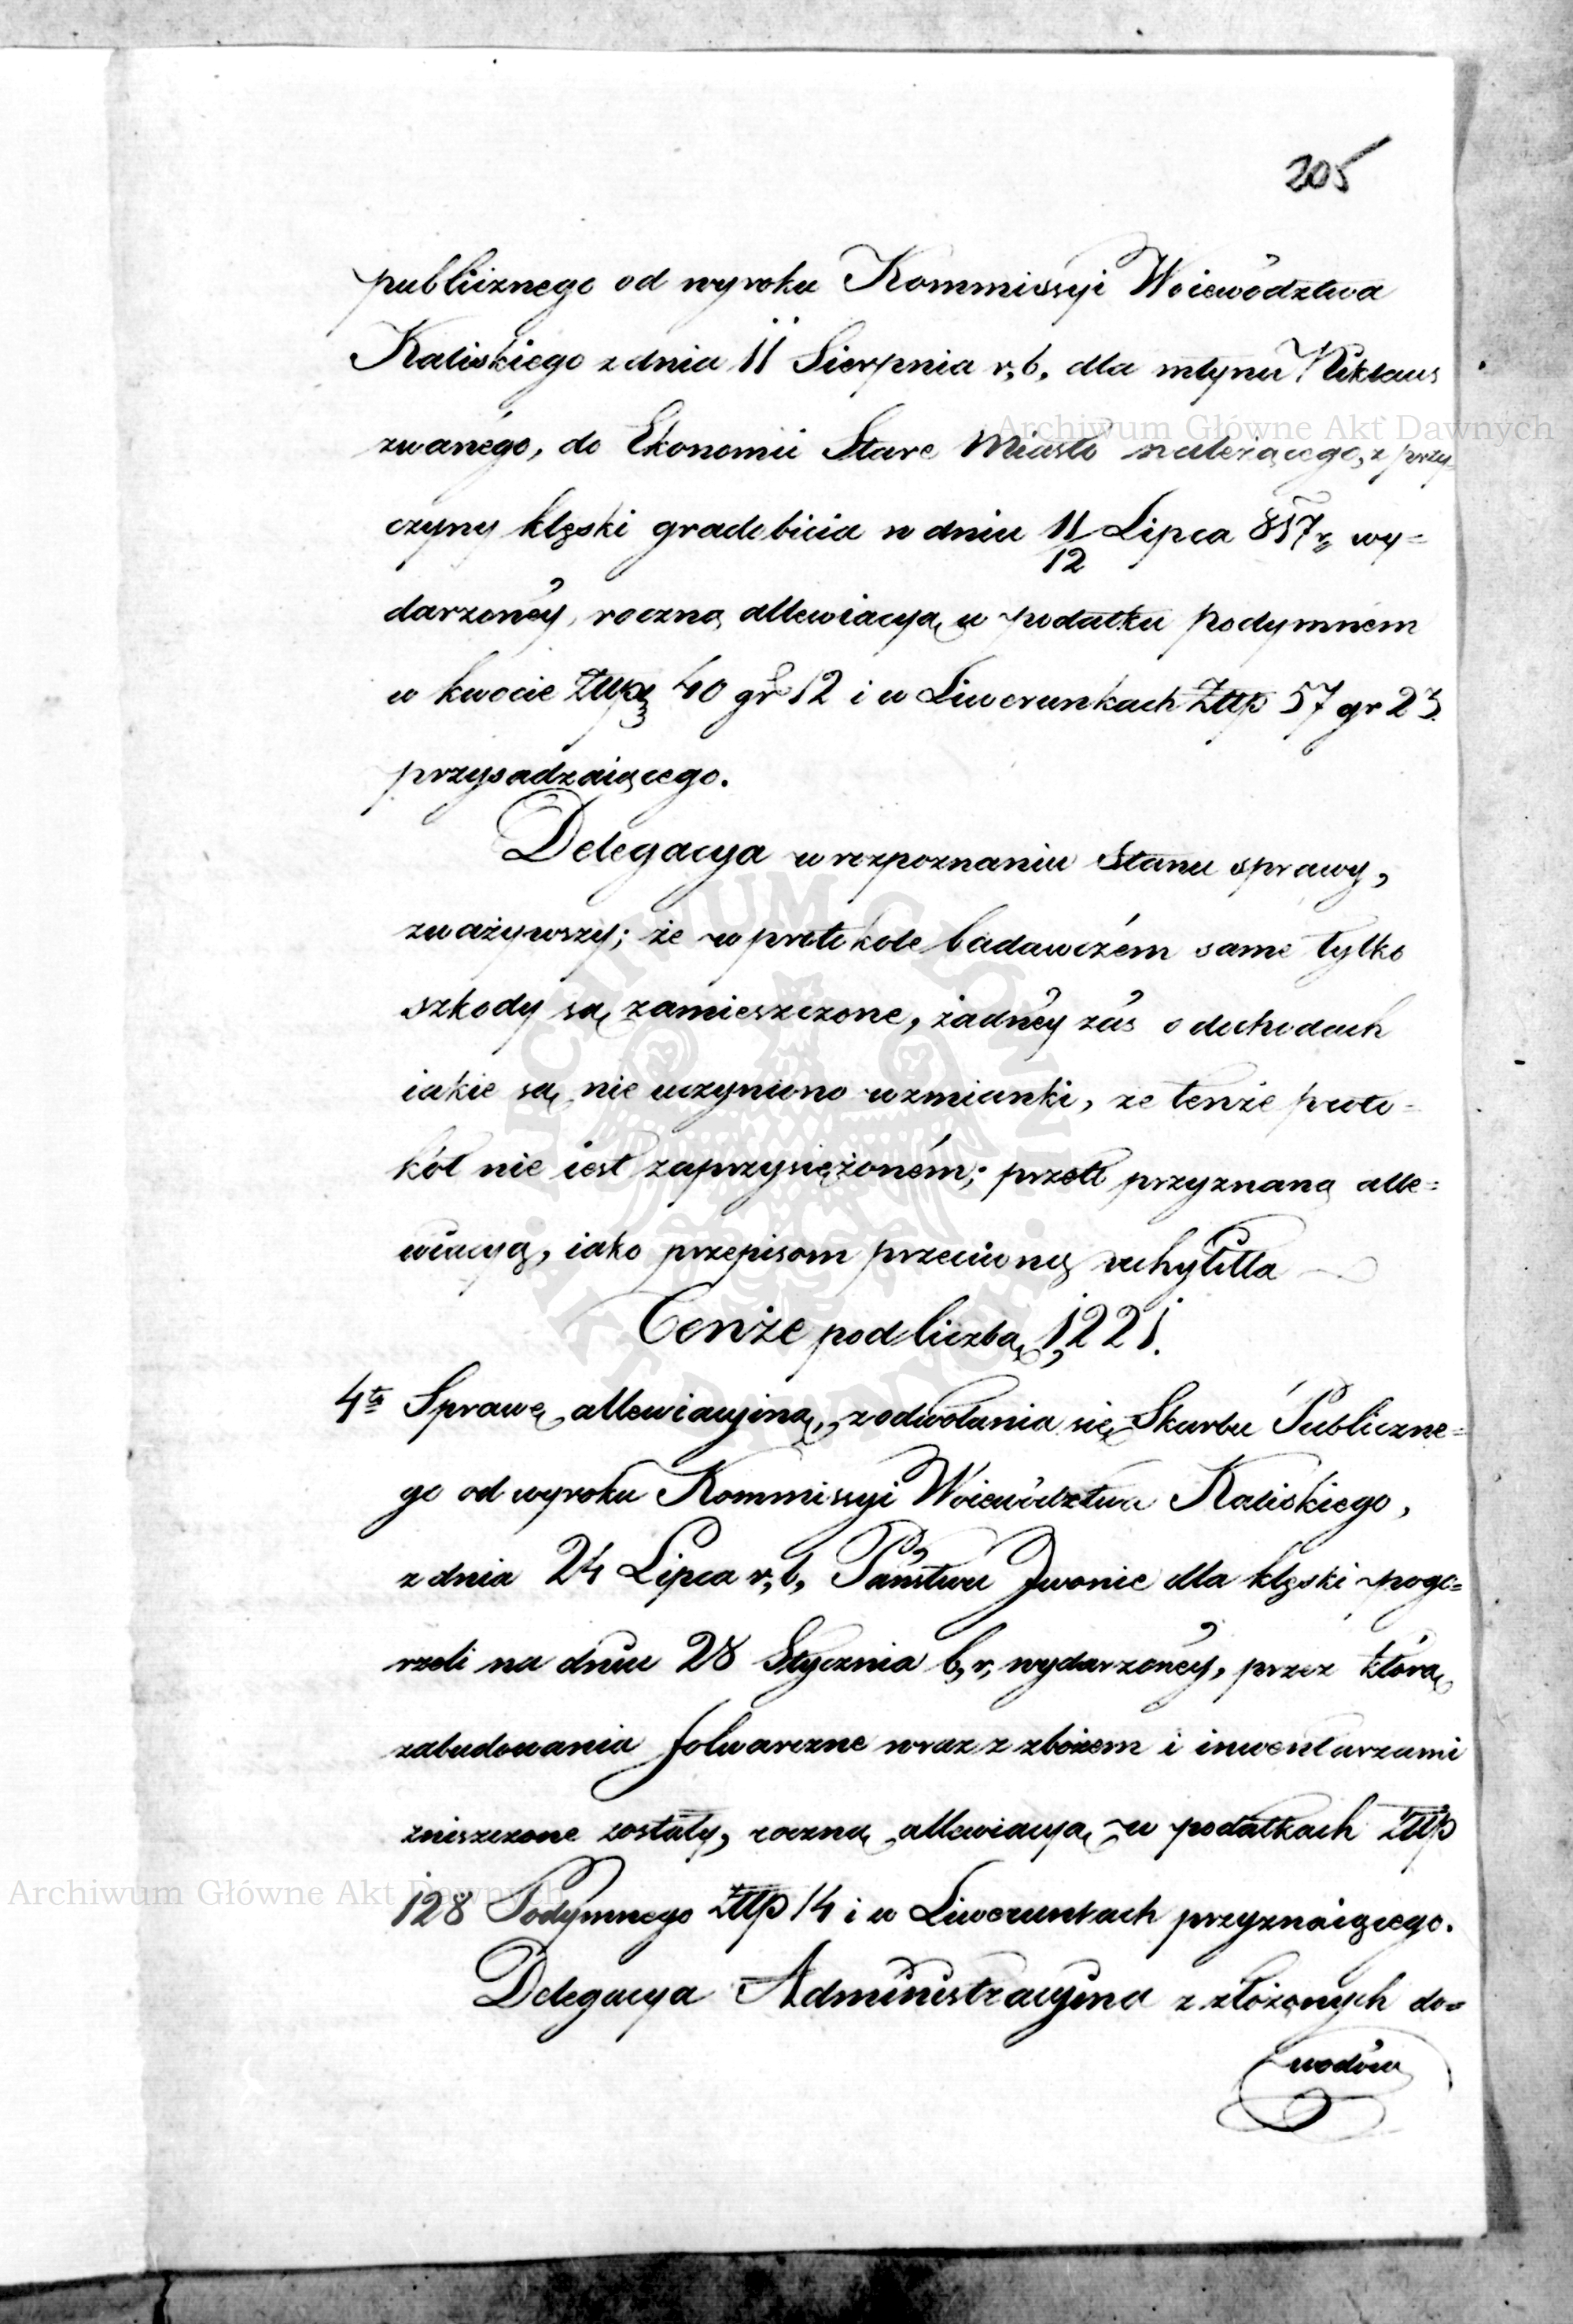 205
publicznego od wyroku Kommissyi Woiewództwa
Kaliskiego z dnia 11 Sierpnia r, b, dla młynu Niklaus
zwanego, do Ekonomii Stare Miasto należącego, z przy
czyny klęski gradobicia w dniu 11/12 Lipca 817 r, wy=
darzonéy, roczną allewiacyą w podatku podymném
w kwocie Złłp 40 gr 12 i w Liwerunkach Złłp 57 gr 23.
przysadzaiącego.
Delegacya w rozpoznaniu Stanu sprawy,
zważywszy; że w protokole badawczém same tylko
szkody są zamieszczone, żadnéy zaś o dochodach
iakie są nie uczyniono wzmianki, że tenże proto=
kół nie iest zaprzysiężoném; przeto przyznaną alle=
wiacyą, iako przepisom przeciwną uchyliła
Tenże pod liczbą 1221.
4to Sprawę allewiacyiną, z odwołania się Skarbu Publiczne=
go od wyroku Kommissyi Woiewództwa Kaliskiego,
z dnia 24 Lipca r, b, Państwu Iwonie dla klęski pogo=
rzeli na dniu 28 Stycznia b, r, wydarzonéy, przez którą
zabudowania folwarczne wraz z zbożem i inwentarzami
zniszczone zostały, roczną allewiacyą w podatkach Złłp
128 Podymnego Złłp 14 i w Liwerunkach przyznaiącego.
Delegacya Administracyina z złożonych do=
wodów
Archiwum Główne Akt Dawnych
ARCHIWUM GŁÓWNE AKT DAWNYCH
Archiwum Główne Akt Dawnych